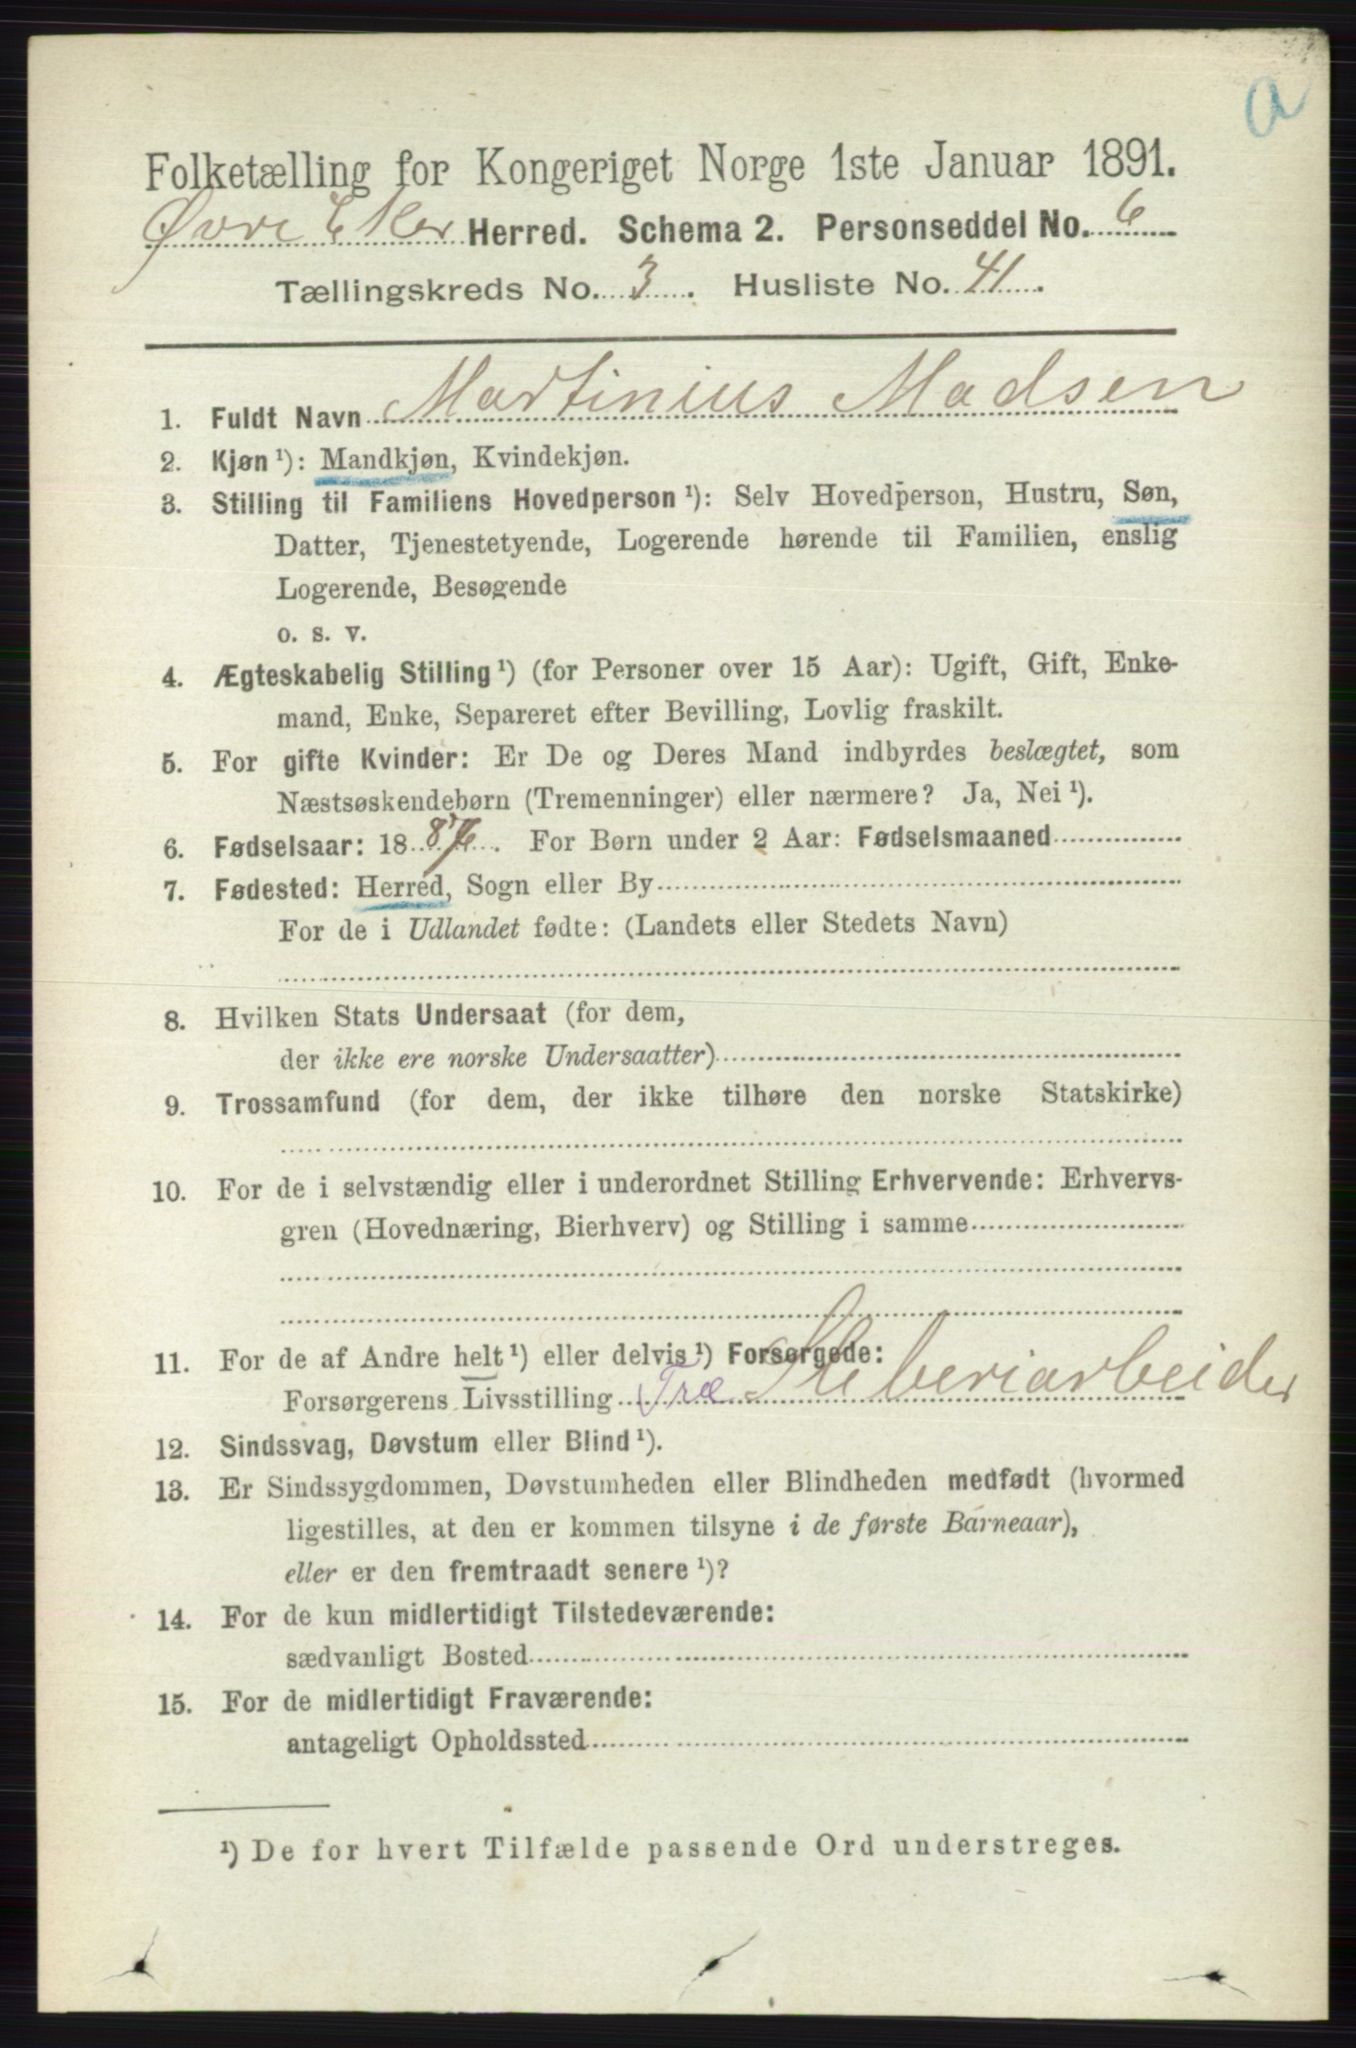 a
Folketælling for Kongeriget Norge 1ste Januar 1891.
Øvre Eker Herred. Schema 2. Personseddel No. 6
Tællingskreds No. 3. Husliste No. 41.
1. Fuldt Navn Martinius Madsen
2. Kjøn ¹): Mandkjøn, Kvindekjøn.
3. Stilling til Familiens Hovedperson ¹): Selv Hovedperson, Hustru, Søn,
Datter, Tjenestetyende, Logerende hørende til Familien, enslig
Logerende, Besøgende
o. s. v.
4. Ægteskabelig Stilling ¹) (for Personer over 15 Aar): Ugift, Gift, Enke-
mand, Enke, Separeret efter Bevilling, Lovlig fraskilt.
5. For gifte Kvinder: Er De og Deres Mand indbyrdes beslægtet, som
Næstsøskendebørn (Tremenninger) eller nærmere? Ja, Nei ¹).
6. Fødselsaar: 18 8 . For Børn under 2 Aar: Fødselsmaaned
7. Fødested: Herred, Sogn eller By
For de i Udlandet fødte: (Landets eller Stedets Navn)
8. Hvilken Stats Undersaat (for dem,
der ikke ere norske Undersaatter)
9. Trossamfund (for dem, der ikke tilhøre den norske Statskirke)
10. For de i selvstændig eller i underordnet Stilling Erhvervende: Erhvervs-
gren (Hovednæring, Bierhverv) og Stilling i samme
11. For de af Andre helt ¹) eller delvis ¹) Forsørgede:
Forsørgerens Livsstilling Træ Sliberiarbeider
12. Sindssvag, Døvstum eller Blind ¹).
13. Er Sindssygdommen, Døvstumheden eller Blindheden medfødt (hvormed
ligestilles, at den er kommen tilsyne i de første Barneaar),
eller er den fremtraadt senere ¹)?
14. For de kun midlertidigt Tilstedeværende:
sædvanligt Bosted
15. For de midlertidigt Fraværende:
antageligt Opholdssted
¹) De for hvert Tilfælde passende Ord understreges.